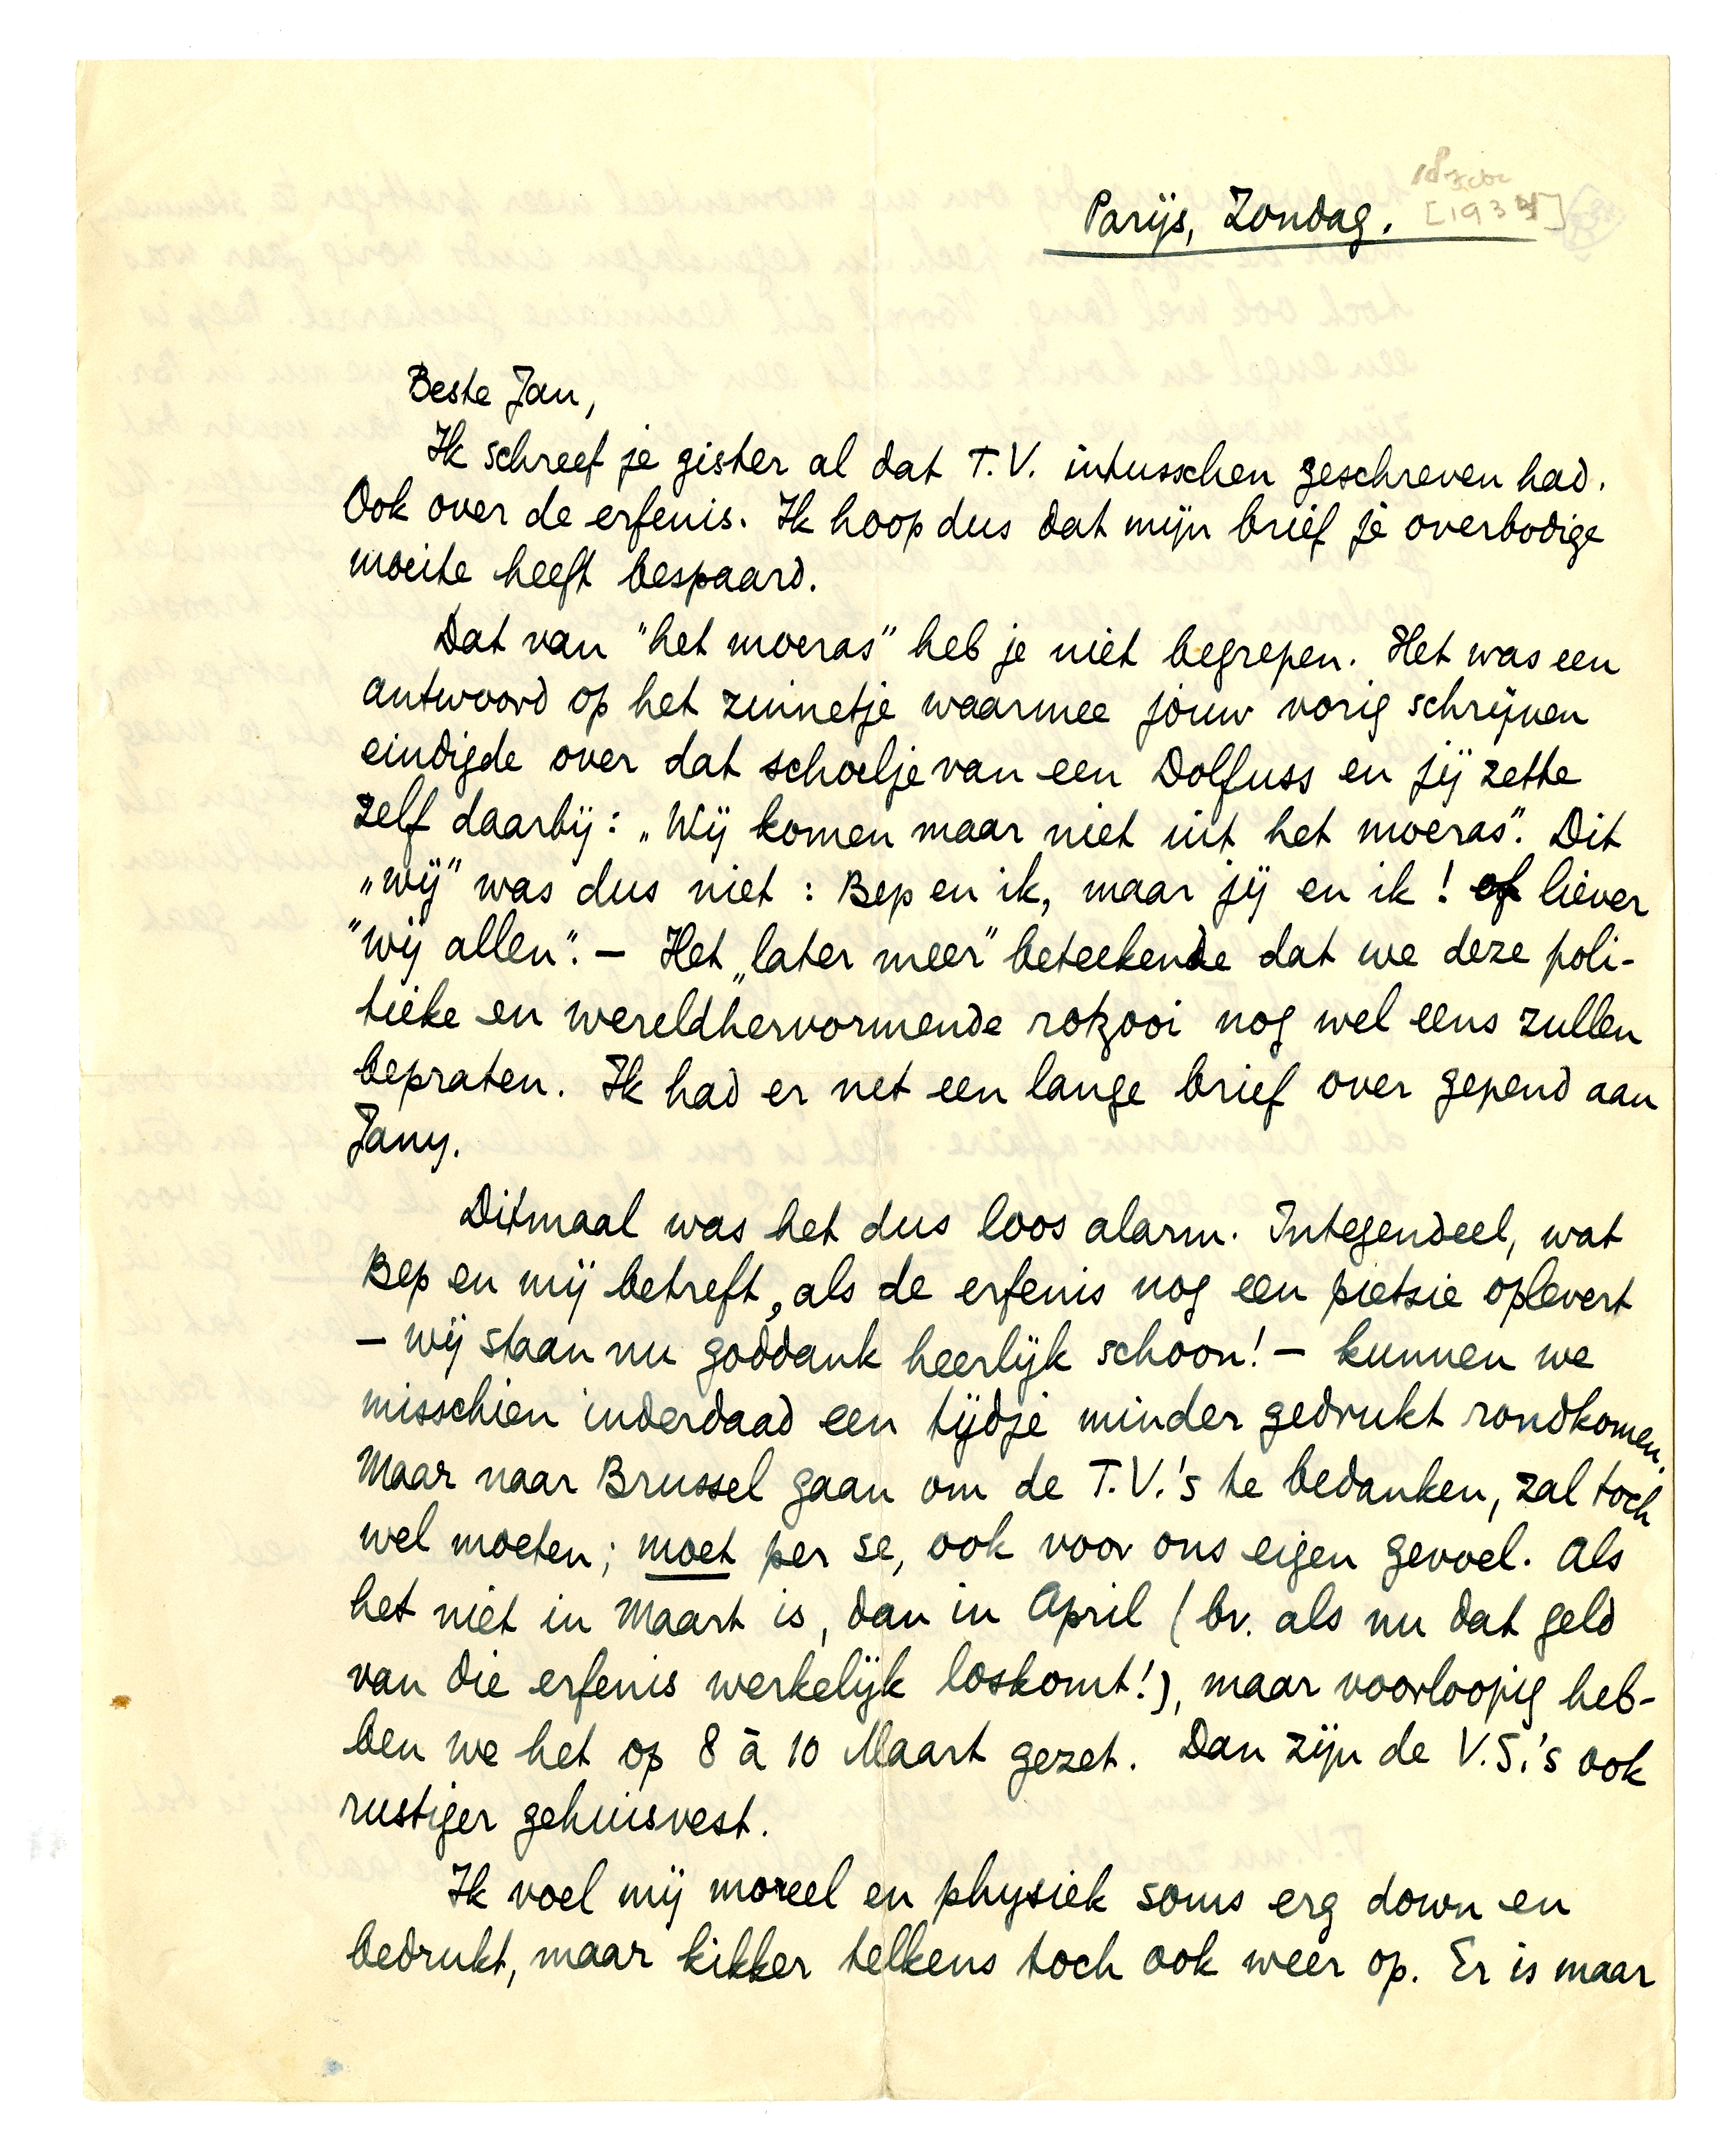 18 Febr
Parijs, Zondag. [1934]
Beste Jan,
Ik schreef je gister al dat T.V. intusschen geschreven had.
Ook over de erfenis. Ik hoop dus dat mijn brief je overbodige
moeite heeft bespaard.
Dat van "het moeras" heb je niet begrepen. Het was een
antwoord op het zinnetje waarmee jouw vorig schrijven
eindigde over dat schoelje van een Dolfuss en jij zette
zelf daarbij: „Wij komen maar niet uit het moeras". Dit
„wij" was dus niet: Bep en ik, maar jij en ik! of liever
"wij allen". — Het „later meer" beteekende dat we deze poli-
tieke en wereldhervormende rotzooi nog wel eens zullen
bepraten. Ik had er net een lange brief over gepend aan
Jany.
Ditmaal was het dus loos alarm. Integendeel, wat
Bep en mij betreft, als de erfenis nog een pietsie oplevert
— wij staan nu goddank heerlijk schoon! — kunnen we
misschien inderdaad een tijdje minder gedrukt rondkomen.
Maar naar Brussel gaan om de T.V.'s te bedanken, zal toch
wel moeten; moet per se, ook voor ons eigen gevoel. Als
het niet in Maart is, dan in April (bv. als nu dat geld
van die erfenis werkelijk loskomt!), maar voorloopig heb-
ben we het op 8 à 10 Maart gezet. Dan zijn de V.S.'s ook
rustiger gehuisvest.
Ik voel mij moreel en physiek soms erg down en
bedrukt, maar kikker telkens toch ook weer op. Er is maar